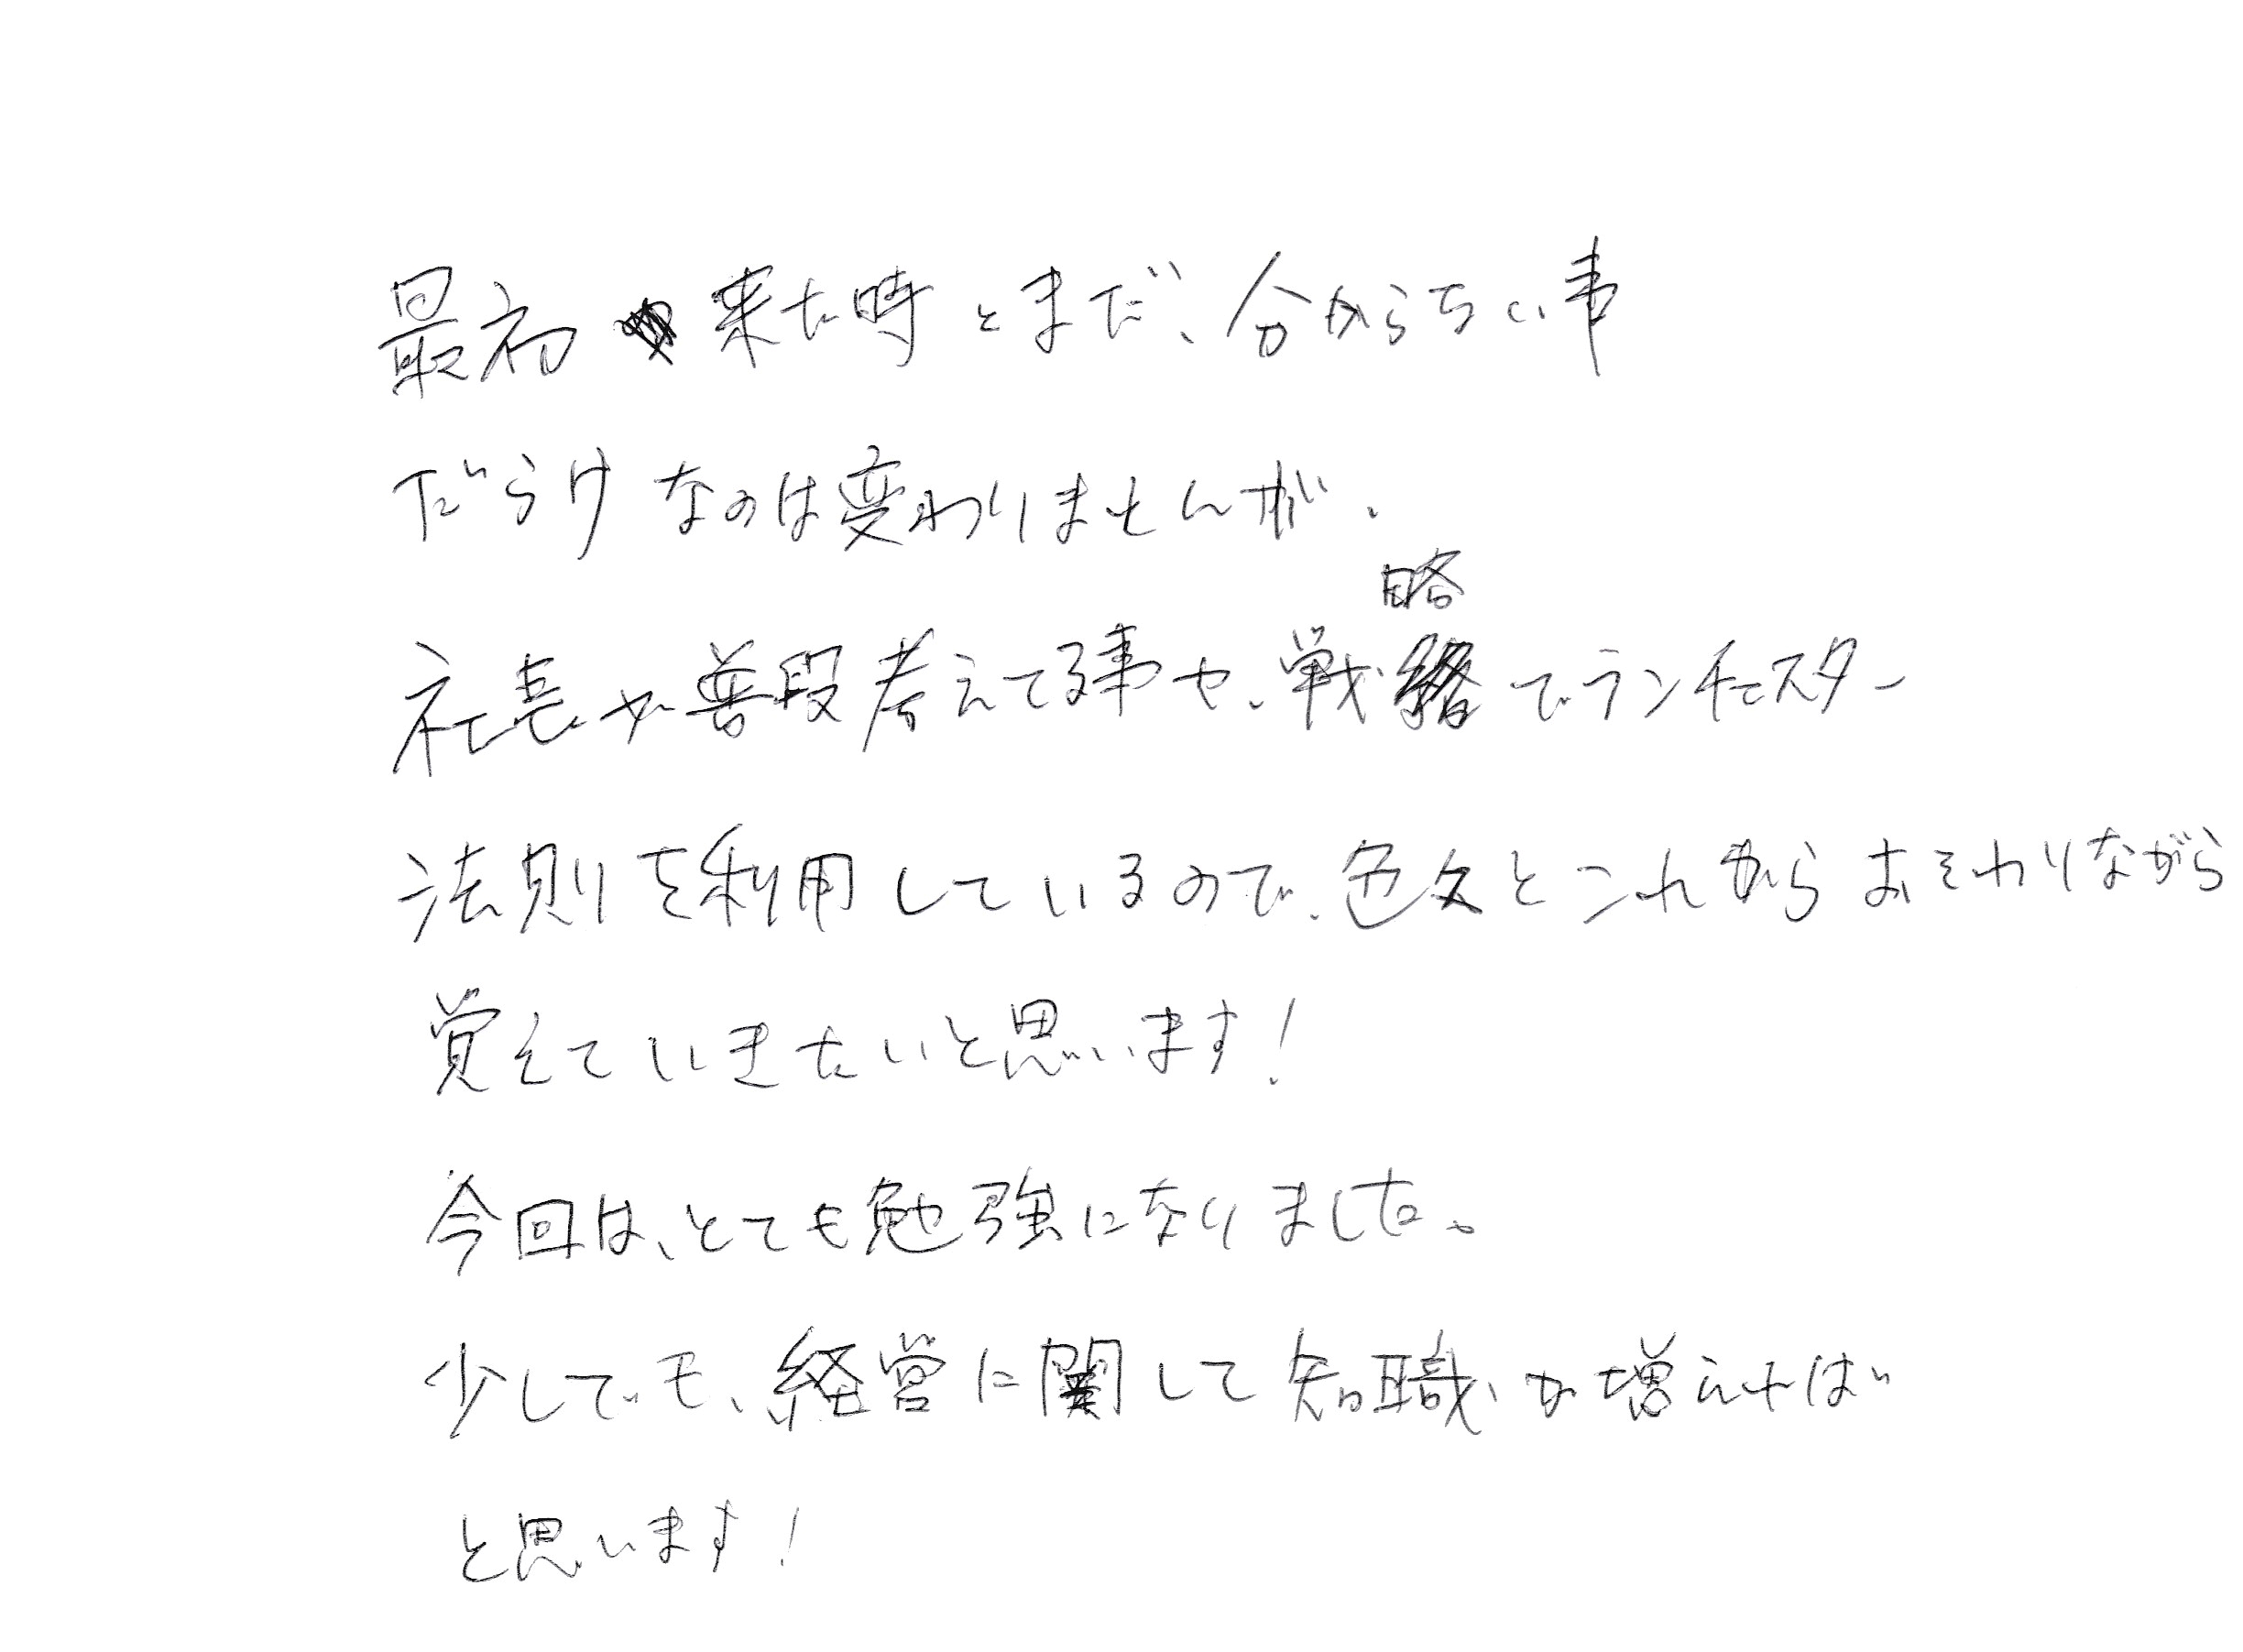 最初来た時とまだ、分からない事
だらけなのは変わりませんが、
社長が普段考えてる事や、戦略でランチェスター
法則を利用しているので、色々とこれからおそわりながら
覚えていきたいと思います!
今回は、とても勉強になりました。
少しでも、経営に関して知職が増えればば
と思います!